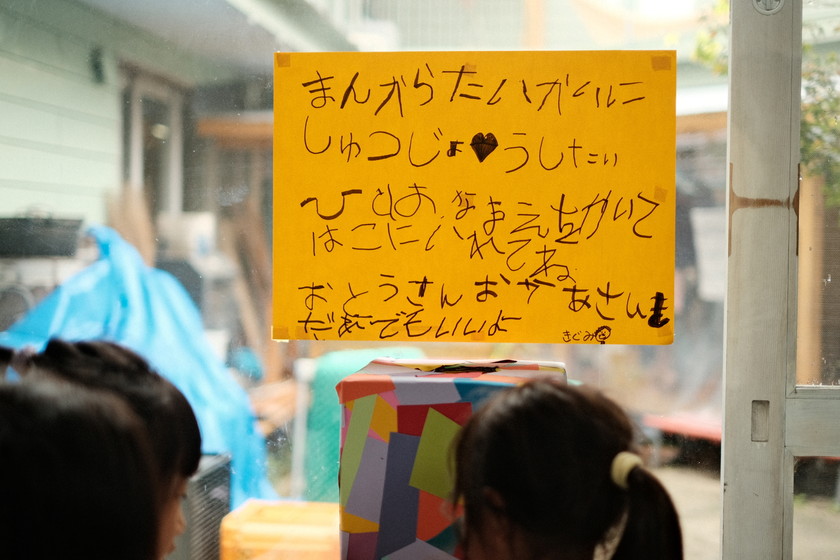 まんがらたいがいに
しゅつじょ♥うしたい
ひとわ なまえをかいて
はこにいれてね
おとうさんおかあさんも
だれでもいいよ
きぐみ